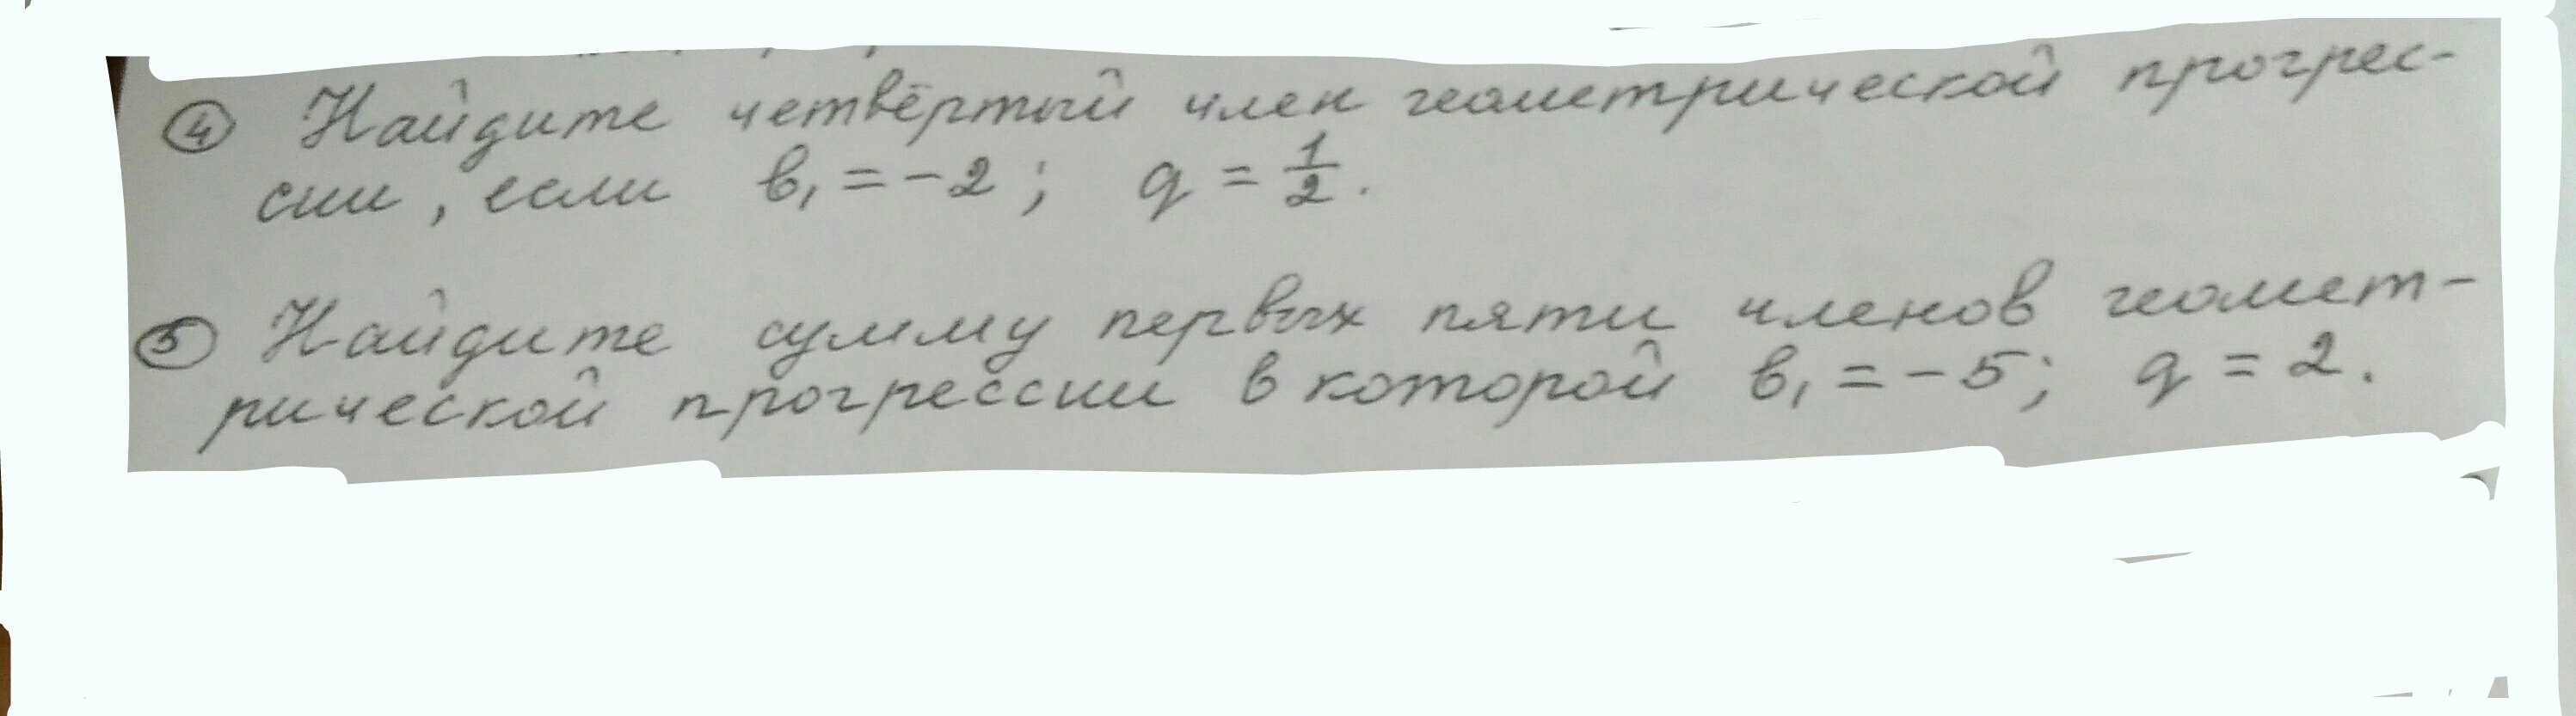 ④ Найдите четвёртый член геометрической прогрес-
сии, если в₁ = -2; q = 1/2.
⑤ Найдите сумму первых пяти членов геомет-
рической прогрессии в которой в₁ = -5; q = 2.